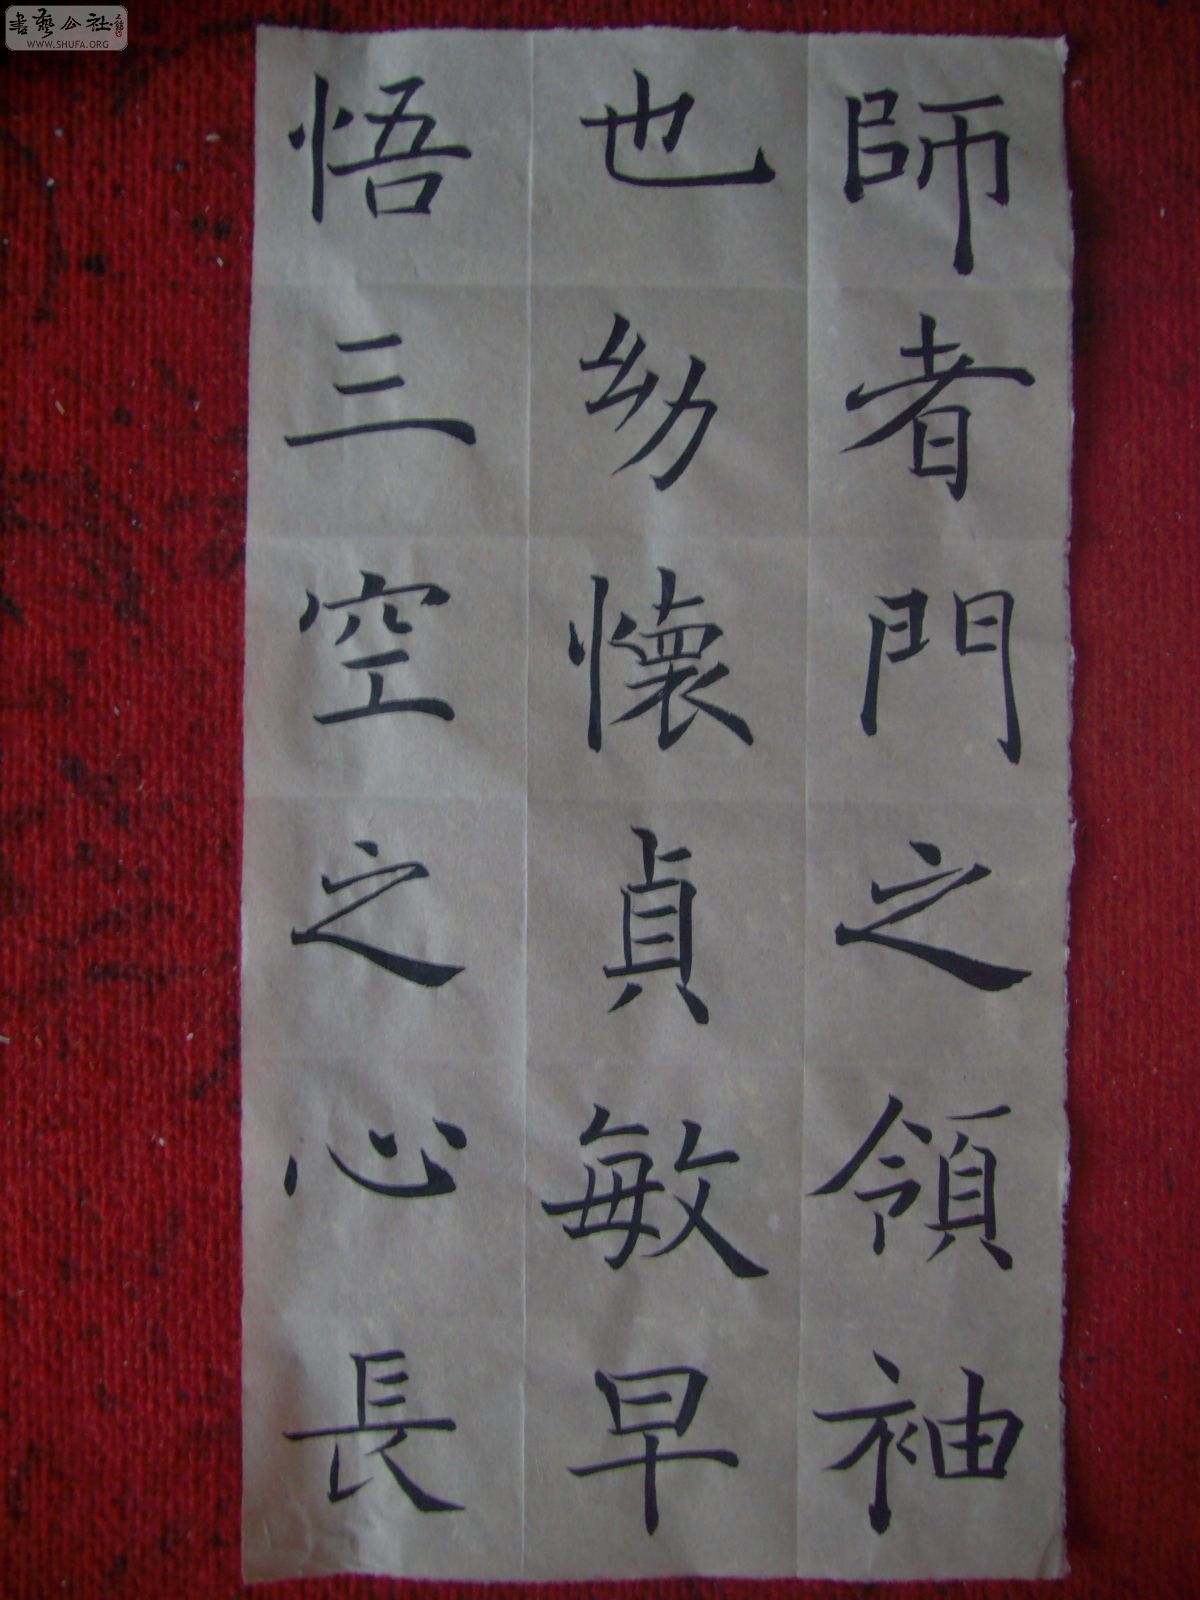 師者門之領袖
也幼懷貞敏早
悟三空之心長
書藝公社
WWW.SHUFA.ORG